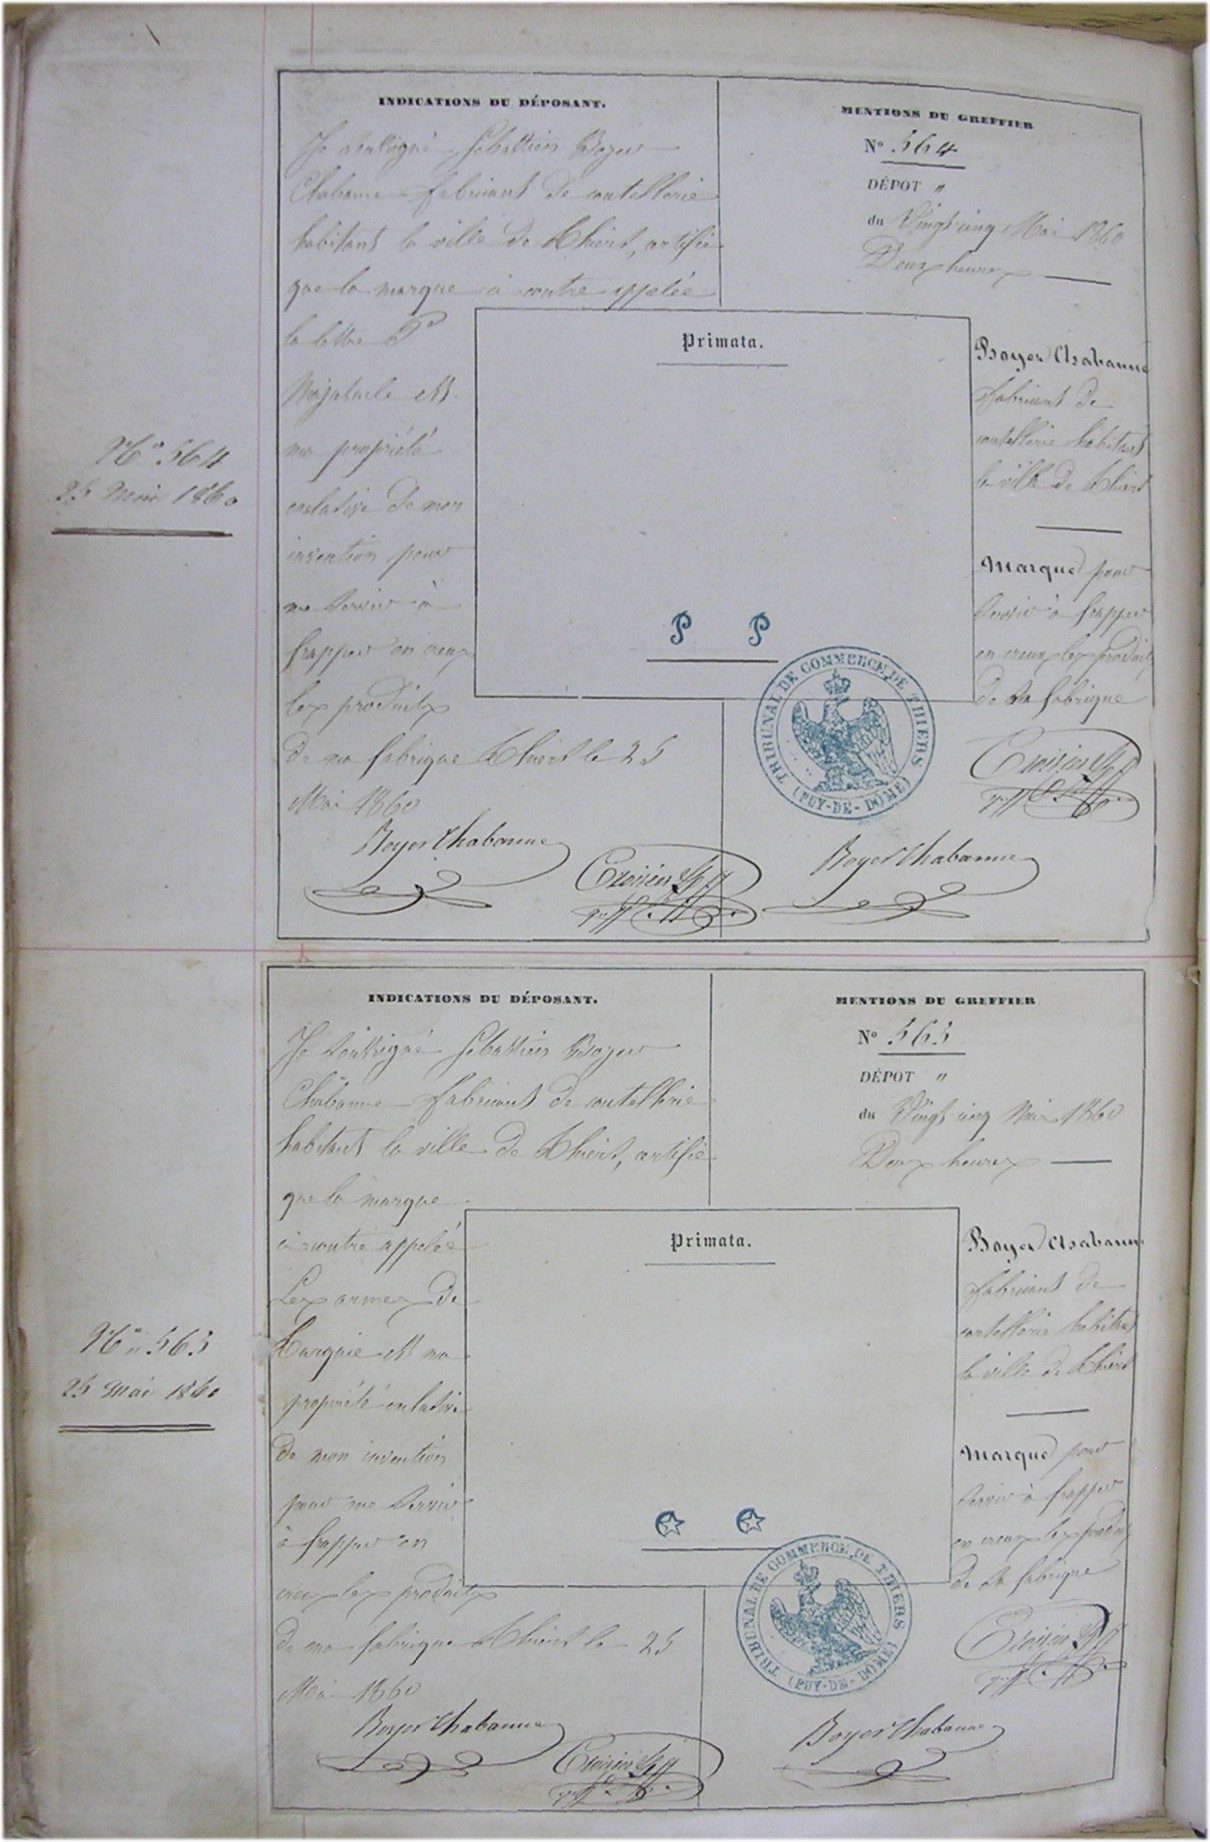 N° 564
25 Mai 1860
INDICATIONS DU DÉPOSANT.
Je soussigné Sébastien Boyer
Chabanne fabricant de coutellerie
habitant la ville de Thiers, certifie
que la marque ci contre appelée
la lettre P
Majuscule est
ma propriété
exclusive de mon
invention pour
me servir à
frapper en creux
les produits
de ma fabrique Thiers le 25
Mai 1860
Boyer Chabanne
MENTIONS DU GREFFIER
N° 564
DÉPOT "
du Vingt cinq Mai 1860
Deux heures
Primata.
P P
Boyer Chabanne
fabricant de
coutellerie habitant
la ville de Thiers
Marque pour
servir à frapper
en creux les produits
de sa fabrique
TRIBUNAL DE COMMERCE DE THIERS
(PUY-DE-DÔME)
Boyer Chabanne
N° 565
25 Mai 1860
INDICATIONS DU DÉPOSANT.
Je soussigné Sébastien Boyer
Chabanne fabricant de coutellerie
habitant la ville de Thiers, certifie
que la marque
ci contre appelée
Les armes de
Turquie est ma
propriété exclusive
de mon invention
pour me servir
à frapper en
creux les produits
de ma fabrique Thiers le 25
Mai 1860
Boyer Chabanne
MENTIONS DU GREFFIER
N° 565
DÉPOT "
du Vingt cinq Mai 1860
Deux heures
Primata.
Boyer Chabanne
fabricant de
coutellerie habitant
la ville de Thiers
Marque pour
servir à frapper
en creux les produits
de sa fabrique
TRIBUNAL DE COMMERCE DE THIERS
(PUY-DE-DÔME)
Boyer Chabanne